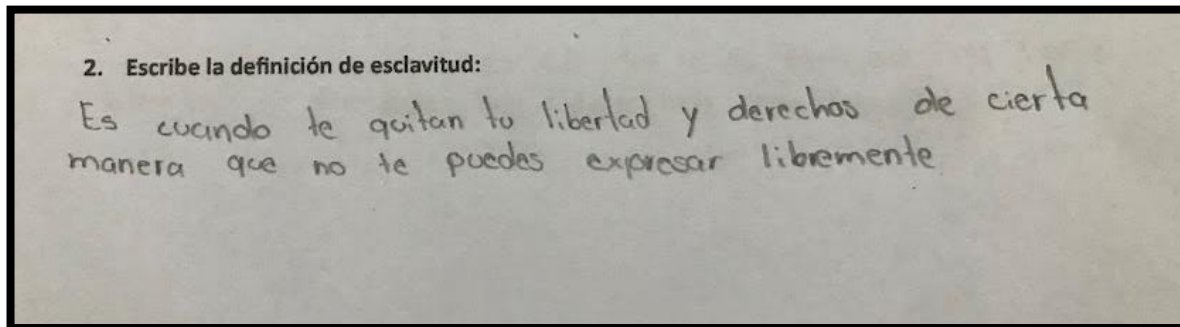 2. Escribe la definición de esclavitud:
Es cuando te quitan tu libertad y derechos de cierta
manera que no te puedes expresar libremente